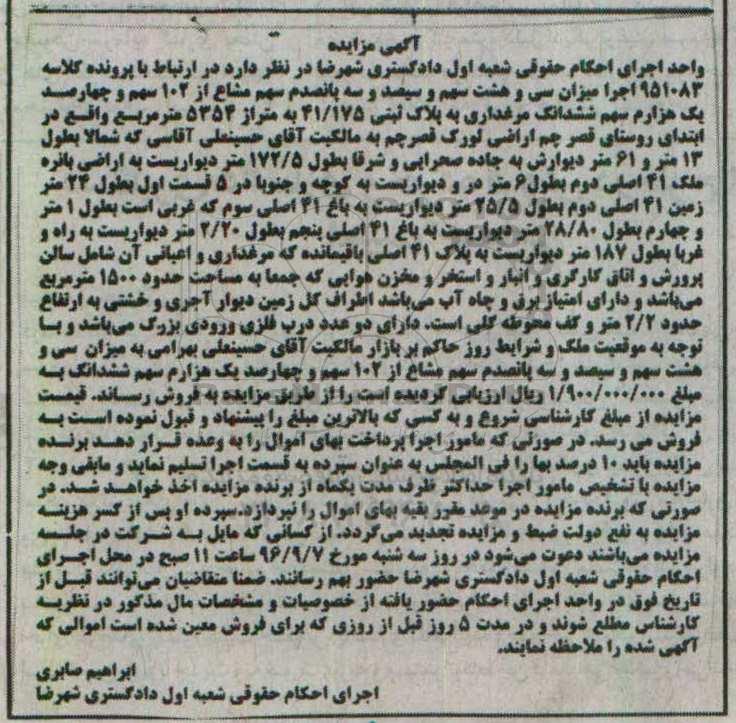 آگهی مزایده
واحد اجرای احکام حقوقی شعبه اول دادگستری شهرضا در نظر دارد در ارتباط با پرونده کلاسه
۹۵۱۰۸۳ اجرا میزان سی و هشت سهم و سیصد و سه پانصدم سهم مشاع از ۱۰۲ سهم و چهارصد
یک هزارم سهم ششدانگ مرغداری به پلاک ثبتی ۴۱/۱۷۵ به متراژ ۵۳۵۴ مترمربع واقع در
ابتدای روستای قصر چم اراضی لورک قصرچم به مالکیت آقای حسینعلی آقاسی که شمالا بطول
۱۳ متر و ۶۱ متر دیوارش به جاده صحرایی و شرقا بطول ۱۷۲/۵ متر دیواریست به اراضی بائره
ملک ۴۱ اصلی دوم بطول ۶ متر در و دیواریست به کوچه و جنوبا در ۵ قسمت اول بطول ۲۴ متر
زمین ۴۱ اصلی دوم بطول ۲۵/۵ متر دیواریست به باغ ۴۱ اصلی سوم که غربی است بطول ۱ متر
و چهارم بطول ۲۸/۸۰ متر دیواریست به باغ ۴۱ اصلی پنجم بطول ۲/۲۰ متر دیواریست به راه و
غربا بطول ۱۸۷ متر دیواریست به پلاک ۴۱ اصلی باقیمانده که مرغداری و اعیانی آن شامل سالن
پرورش و اتاق کارگری و انبار و استخر و مخزن هوایی که جمعا به مساحت حدود ۱۵۰۰ مترمربع
می‌باشد و دارای امتیاز برق و چاه آب می‌باشد اطراف کل زمین دیوار آجری و خشتی به ارتفاع
حدود ۲/۲ متر و کف محوطه گلی است. دارای دو عدد درب فلزی ورودی بزرگ می‌باشد و با
توجه به موقعیت ملک و شرایط روز حاکم بر بازار مالکیت آقای حسینعلی بهرامی به میزان سی و
هشت سهم و سیصد و سه پانصدم سهم مشاع از ۱۰۲ سهم و چهارصد یک هزارم سهم ششدانگ به
مبلغ ۱/۹۰۰/۰۰۰/۰۰۰ ریال ارزیابی گردیده است را از طریق مزایده به فروش رساند. قیمت
مزایده از مبلغ کارشناسی شروع و به کسی که بالاترین مبلغ را پیشنهاد و قبول نموده است به
فروش می رسد. در صورتی که مامور اجرا پرداخت بهای اموال را به وعده قرار دهد برنده
مزایده باید ۱۰ درصد بها را فی المجلس به عنوان سپرده به قسمت اجرا تسلیم نماید و مابقی وجه
مزایده با تشخیص مامور اجرا حداکثر ظرف مدت یکماه از برنده مزایده اخذ خواهد شد. در
صورتی که برنده مزایده در موعد مقرر بقیه بهای اموال را نپردازد.سپرده او پس از کسر هزینه
مزایده به نفع دولت ضبط و مزایده تجدید می‌گردد. از کسانی که مایل به شرکت در جلسه
مزایده می‌باشند دعوت می‌شود در روز سه شنبه مورخ ۹۶/۹/۷ ساعت ۱۱ صبح در محل اجرای
احکام حقوقی شعبه اول دادگستری شهرضا حضور بهم رسانند. ضمنا متقاضیان می‌توانند قبل از
تاریخ فوق در واحد اجرای احکام حضور یافته از خصوصیات و مشخصات مال مذکور در نظریه
کارشناس مطلع شوند و در مدت ۵ روز قبل از روزی که برای فروش معین شده است اموالی که
آگهی شده را ملاحظه نمایند.
ابراهیم صابری
اجرای احکام حقوقی شعبه اول دادگستری شهرضا